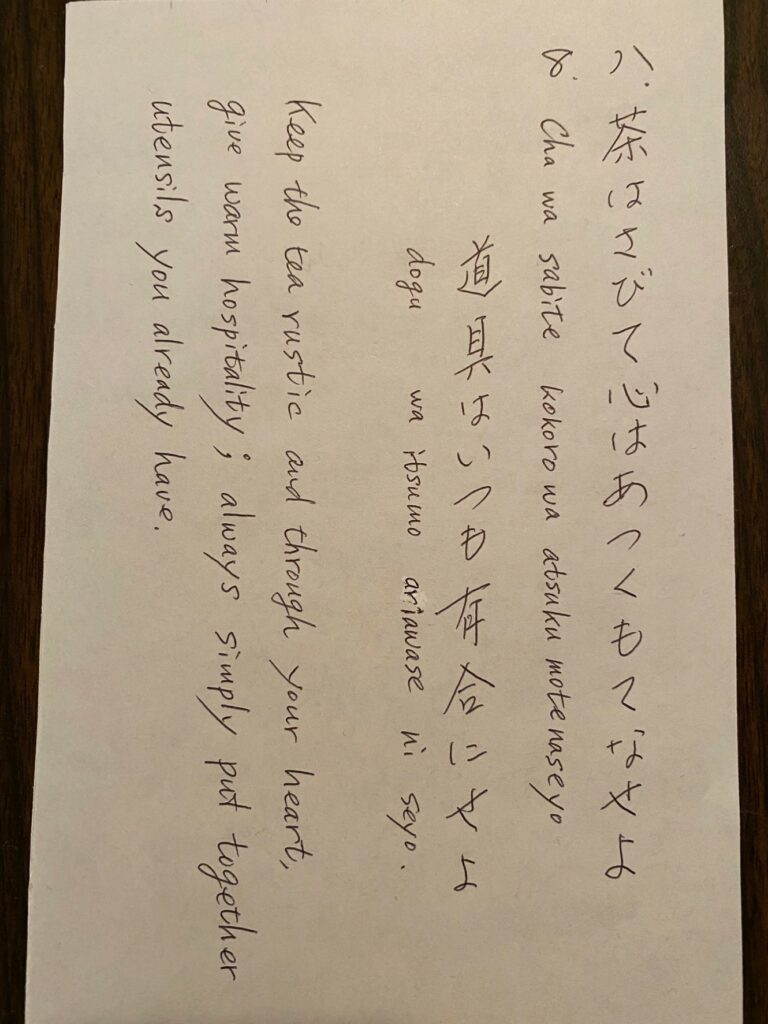 八. 茶はさびて心はあつくもてなせよ
8. Cha wa sabite kokoro wa atsuku motenaseyo
道具はいつも有合にせよ
dogu wa itsumo ariawase ni seyo.
Keep the tea rustic and through your heart,
give warm hospitality; always simply put together
utensils you already have.